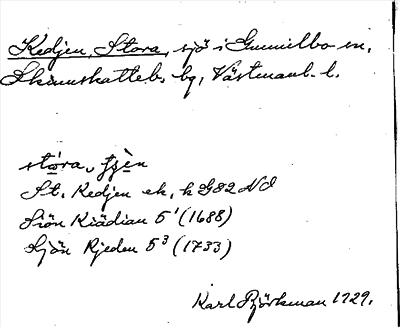 Kedjen, Stora, sjö i Gunnilbo sn,
Skinnskatteb. bg, Västmanl. l.
stóra,
St. Kedjen ek. k G82 NO
Siön Kiädian 5¹ (1688)
Sjön Kjeden 5³ (1733)
Karl Björkman 1929.